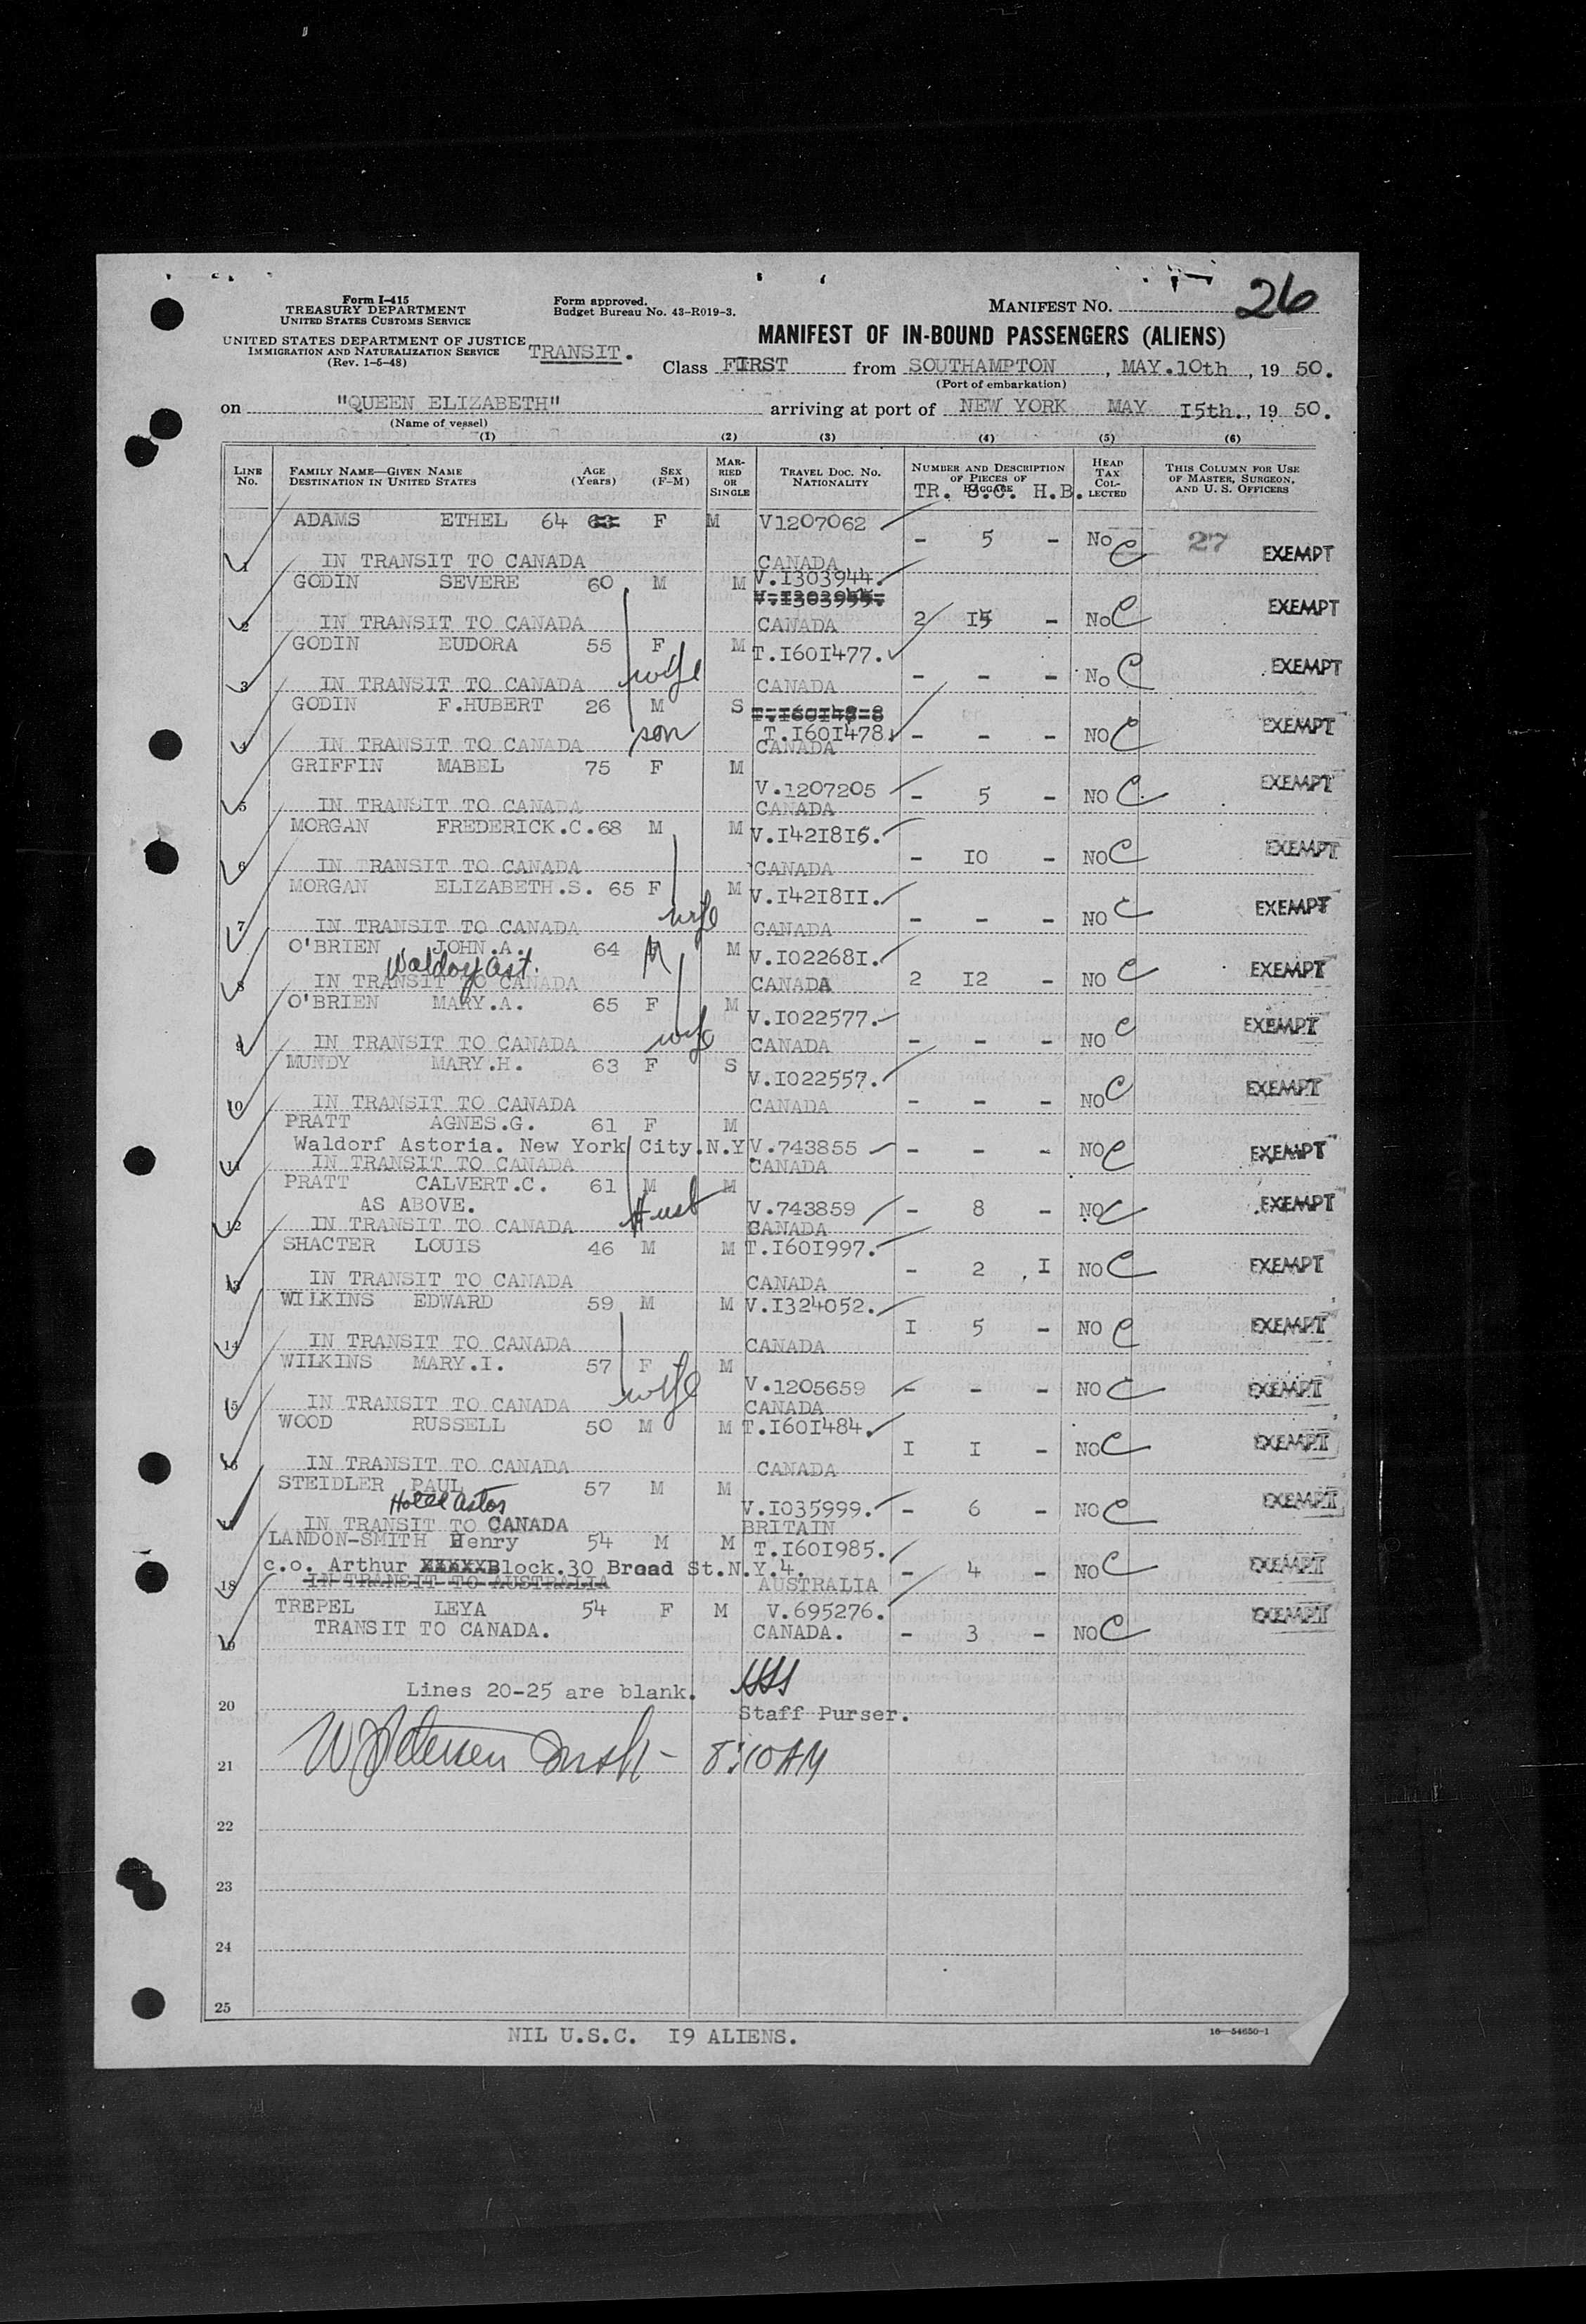 Form I-415
TREASURY DEPARTMENT
UNITED STATES CUSTOMS SERVICE
UNITED STATES DEPARTMENT OF JUSTICE
IMMIGRATION AND NATURALIZATION SERVICE
(Rev. 1-5-48)
TRANSIT.
Form approved.
Budget Bureau No. 43-R019-3.
MANIFEST NO. 26
MANIFEST OF IN-BOUND PASSENGERS (ALIENS)
Class FIRST from SOUTHAMPTON, MAY.10th, 19 50.
(Port of embarkation)
on "QUEEN ELIZABETH" arriving at port of NEW YORK MAY 15th., 19 50.
(Name of vessel)
(1) (2) (3) (4) (5) (6)
LINE No. FAMILY NAME—GIVEN NAME DESTINATION IN UNITED STATES AGE (Years) SEX (F-M) MARRIED OR SINGLE TRAVEL DOC. NO. NATIONALITY NUMBER AND DESCRIPTION OF PIECES OF BAGGAGE HEAD TAX COLLECTED THIS COLUMN FOR USE OF MASTER, SURGEON, AND U. S. OFFICERS
TR. S.C. H.B.
ADAMS ETHEL 64 63 F M V1207062 - 5 - No C 27 EXEMPT
1 IN TRANSIT TO CANADA CANADA
GODIN SEVERE 60 M M V.I303944.
2 IN TRANSIT TO CANADA CANADA 2 15 - No C EXEMPT
GODIN EUDORA 55 F wife M T.I60I477.
3 IN TRANSIT TO CANADA CANADA - - - No C EXEMPT
GODIN F.HUBERT 26 M son S T.I60I478.
4 IN TRANSIT TO CANADA CANADA - - - NO C EXEMPT
GRIFFIN MABEL 75 F M V.1207205 - 5 - NO C EXEMPT
5 IN TRANSIT TO CANADA CANADA
MORGAN FREDERICK.C. 68 M M V.I42I8I5.
6 IN TRANSIT TO CANADA CANADA - IO - NO C EXEMPT
MORGAN ELIZABETH.S. 65 F wife M V.I42I8II.
7 IN TRANSIT TO CANADA CANADA - - - NO C EXEMPT
O'BRIEN JOHN.A. 64 M M V.I02268I.
Waldorf Ast.
8 IN TRANSIT TO CANADA CANADA 2 I2 - NO C EXEMPT
O'BRIEN MARY.A. 65 F wife M V.I022577.
9 IN TRANSIT TO CANADA CANADA - - - NO C EXEMPT
MUNDY MARY.H. 63 F S V.I022557.
10 IN TRANSIT TO CANADA CANADA - - - NO C EXEMPT
PRATT AGNES.G. 61 F M
Waldorf Astoria. New York City.N.Y V.743855 - - - NO C EXEMPT
11 IN TRANSIT TO CANADA CANADA
PRATT CALVERT.C. 61 M Husb M
AS ABOVE. V.743859 - 8 - NO C EXEMPT
12 IN TRANSIT TO CANADA CANADA
SHACTER LOUIS 46 M M T.I60I997.
13 IN TRANSIT TO CANADA CANADA - 2 I NO C EXEMPT
WILKINS EDWARD 59 M M V.I324052.
14 IN TRANSIT TO CANADA CANADA I 5 - NO C EXEMPT
WILKINS MARY.I. 57 F wife M V.1205659 - - - NO C EXEMPT
15 IN TRANSIT TO CANADA CANADA
WOOD RUSSELL 50 M M T.I60I484.
16 IN TRANSIT TO CANADA CANADA I I - NO C EXEMPT
STEIDLER PAUL 57 M M
Hotel Astor V.I035999. - 6 - NO C EXEMPT
17 IN TRANSIT TO CANADA BRITAIN
LANDON-SMITH Henry 54 M M T.I60I985.
c.o. Arthur XXXXXBlock.30 Broad St.N.Y.4. - 4 - NO C EXEMPT
18 IN TRANSIT TO AUSTRALIA AUSTRALIA
TREPEL LEYA 54 F M V.695276.
19 TRANSIT TO CANADA. CANADA. - 3 - NO C EXEMPT
Lines 20-25 are blank.
20 Staff Purser.
21 8:10 AM
22
23
24
25
NIL U.S.C. I9 ALIENS.
16—54650-1